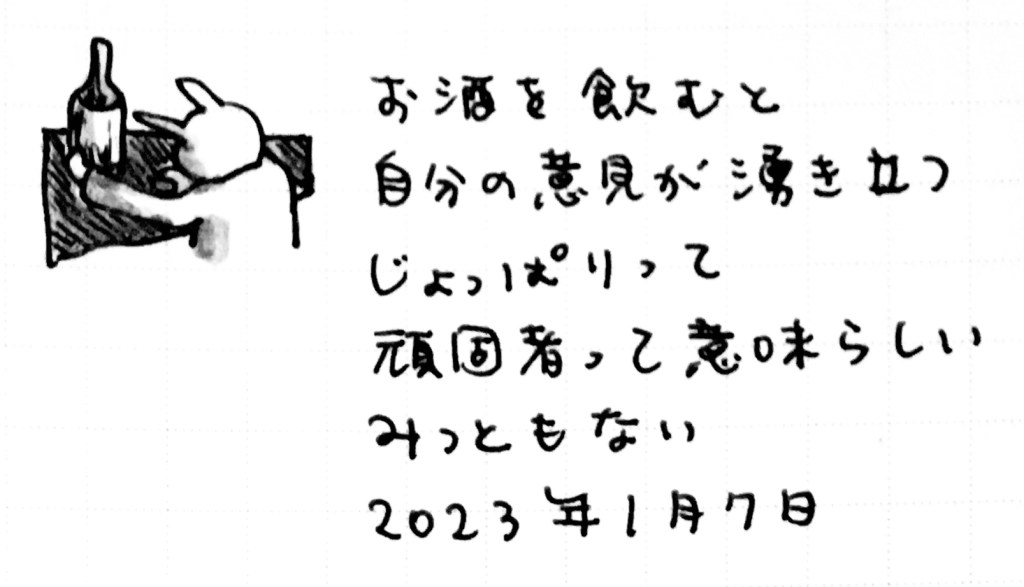 お酒を飲むと
自分の意見が湧き立つ
じょっぱりって
頑固者って意味らしい
みっともない
2023年1月7日